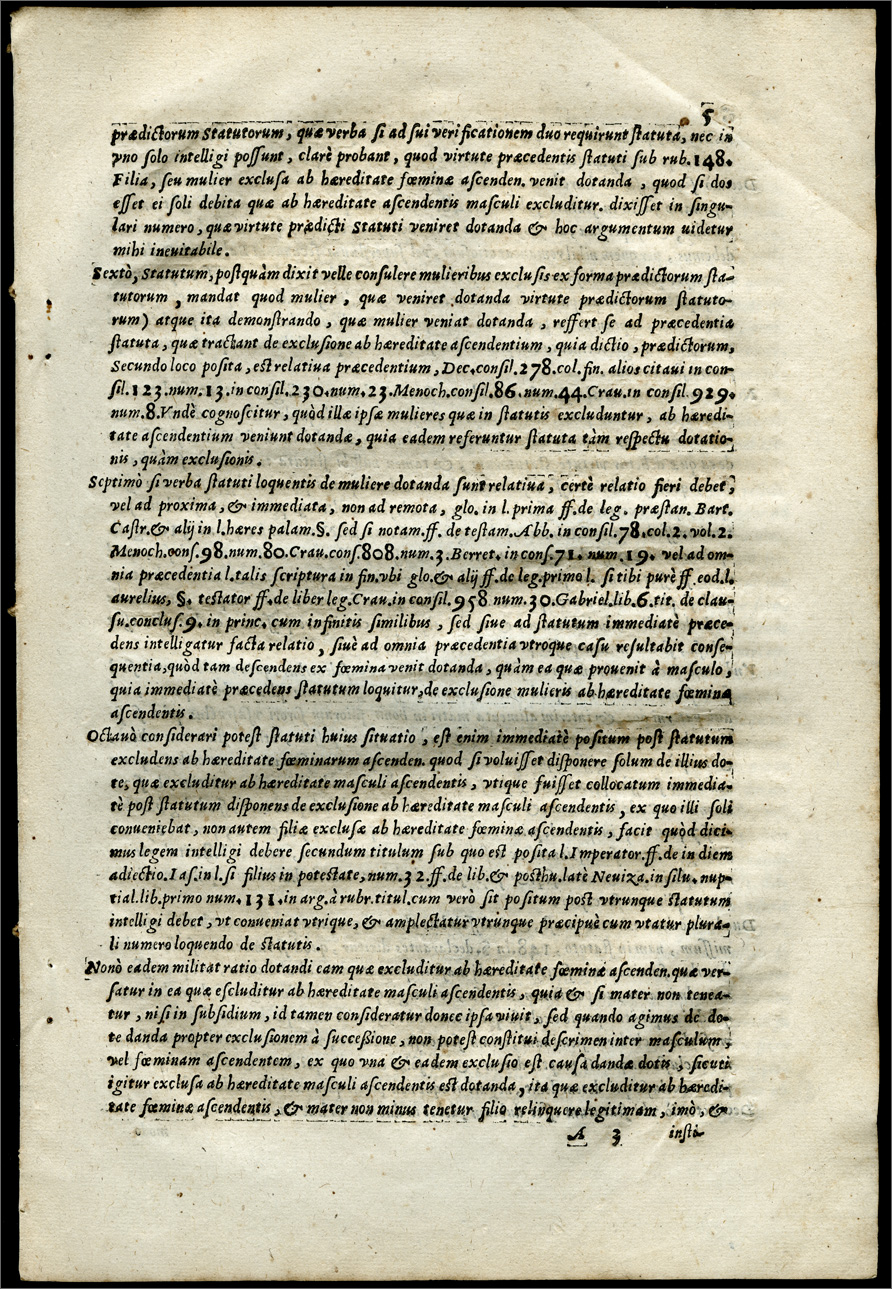 5
prædictorum Statutorum, quæ verba si ad sui verificationem duo requirunt statuta, nec in
vno solo intelligi possunt, clarè probant, quod virtute præcedentis statuti sub rub.148.
Filia, seu mulier exclusa ab hæreditate fœminæ ascenden. venit dotanda, quod si dos
esset ei soli debita quæ ab hæreditate ascendentis masculi excluditur. dixisset in singu-
lari numero, quæ virtute prædicti Statuti veniret dotanda & hoc argumentum uidetur
mihi ineuitabile.
Sextò, Statutum, postquàm dixit velle consulere mulieribus exclusis ex forma prædictorum sta-
tutorum, mandat quod mulier, quæ veniret dotanda virtute prædictorum statuto-
rum) atque ita demonstrando, quæ mulier veniat dotanda, reffert se ad præcedentia
statuta, quæ tractant de exclusione ab hæreditate ascendentium, quia dictio, prædictorum,
Secundo loco posita, est relatiua præcedentium, Dec. consil.278.col.fin. alios citaui in con-
sil.123.num.13.in consil.230.num.23.Menoch.consil.86.num.44.Crau.in consil.929.
num.8.Vndè cognoscitur, quòd illæ ipsæ mulieres quæ in statutis excluduntur, ab hæredi-
tate ascendentium veniunt dotandæ, quia eadem referuntur statuta tàm respectu dotatio-
nis, quàm exclusionis.
Septimò si verba statuti loquentis de muliere dotanda sunt relatiua, certè relatio fieri debet,
vel ad proxima, & immediata, non ad remota, glo. in l.prima ff.de leg. præstan. Bart.
Castr.& alij in l.hæres palam.§. sed si notam.ff. de testam.Abb. in consil.78.col.2.vol.2.
Menoch.cons.98.num.80.Crau.cons.808.num.3.Berret.in cons.71.num.19. vel ad om-
nia præcedentia l.talis scriptura in fin.vbi glo.& alij ff.de leg.primo l. si tibi purè ff.eod.l.
aurelius, §. testator ff.de liber leg.Crau.in consil.958 num.30.Gabriel.lib.6.tit. de clau-
su.conclus.9.in princ. cum infinitis similibus, sed siue ad statutum immediatè præce-
dens intelligatur facta relatio, siuè ad omnia præcedentia vtroque casu resultabit conse-
quentia, quòd tam descendens ex fœmina venit dotanda, quàm ea quæ prouenit à masculo,
quia immediatè præcedens statutum loquitur, de exclusione mulieris ab hæreditate fœminæ
ascendentis.
Octauò considerari potest statuti huius situatio, est enim immediatè positum post statutum
excludens ab hæreditate fœminarum ascenden. quod si voluisset disponere solum de illius do-
te, quæ excluditur ab hæreditate masculi ascendentis, vtique fuisset collocatum immedia-
tè post statutum disponens de exclusione ab hæreditate masculi ascendentis, ex quo illi soli
conueniebat, non autem filiæ exclusæ ab hæreditate fœminæ ascendentis, facit quòd dici-
mus legem intelligi debere secundum titulum sub quo est posita l.Imperator.ff.de in diem
adiectio.Ias.in l.si filius in potestate, num.32.ff.de lib.& posthu.latè Neuiza.in silu. nup-
tial.lib.primo num.131.in arg.à rubr.titul.cum verò sit positum post vtrunque statutum
intelligi debet, vt conueniat vtrique, & amplectatur vtrunque præcipuè cum vtatur plura-
li numero loquendo de statutis.
Nonò eadem militat ratio dotandi eam quæ excluditur ab hæreditate fœminæ ascenden.quæ ver-
satur in ea quæ escluditur ab hæreditate masculi ascendentis, quia & si mater non tenea-
tur, nisi in subsidium, id tamen consideratur donec ipsa viuit, sed quando agimus de do-
te danda propter exclusionem à successione, non potest constitui descrimen inter masculum,
vel fœminam ascendentem, ex quo vna & eadem exclusio est causa dandæ dotis, sicuti
igitur exclusa ab hæreditate masculi ascendentis est dotanda, ita quæ excluditur ab hæredi-
tate fœminæ ascendentis, & mater non minus tenetur filio relinquere legitimam, imò, &
A 3 insti-